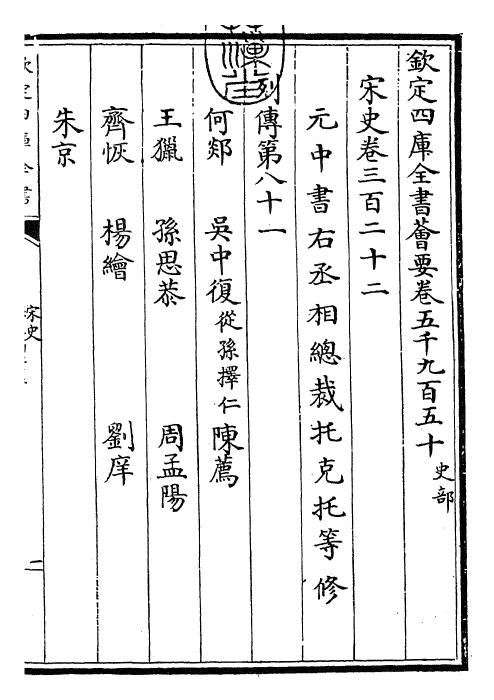 欽定四庫全書薈要卷五千九百五十 史部
宋史卷三百二十二
元中書右丞相總裁托克托等修
列傳第八十一
何郯 吳中復 從孫擇仁 陳薦
王獵 孫思恭 周孟陽
齊恢 楊繪 劉庠
朱京
欽定四庫全書
宋史